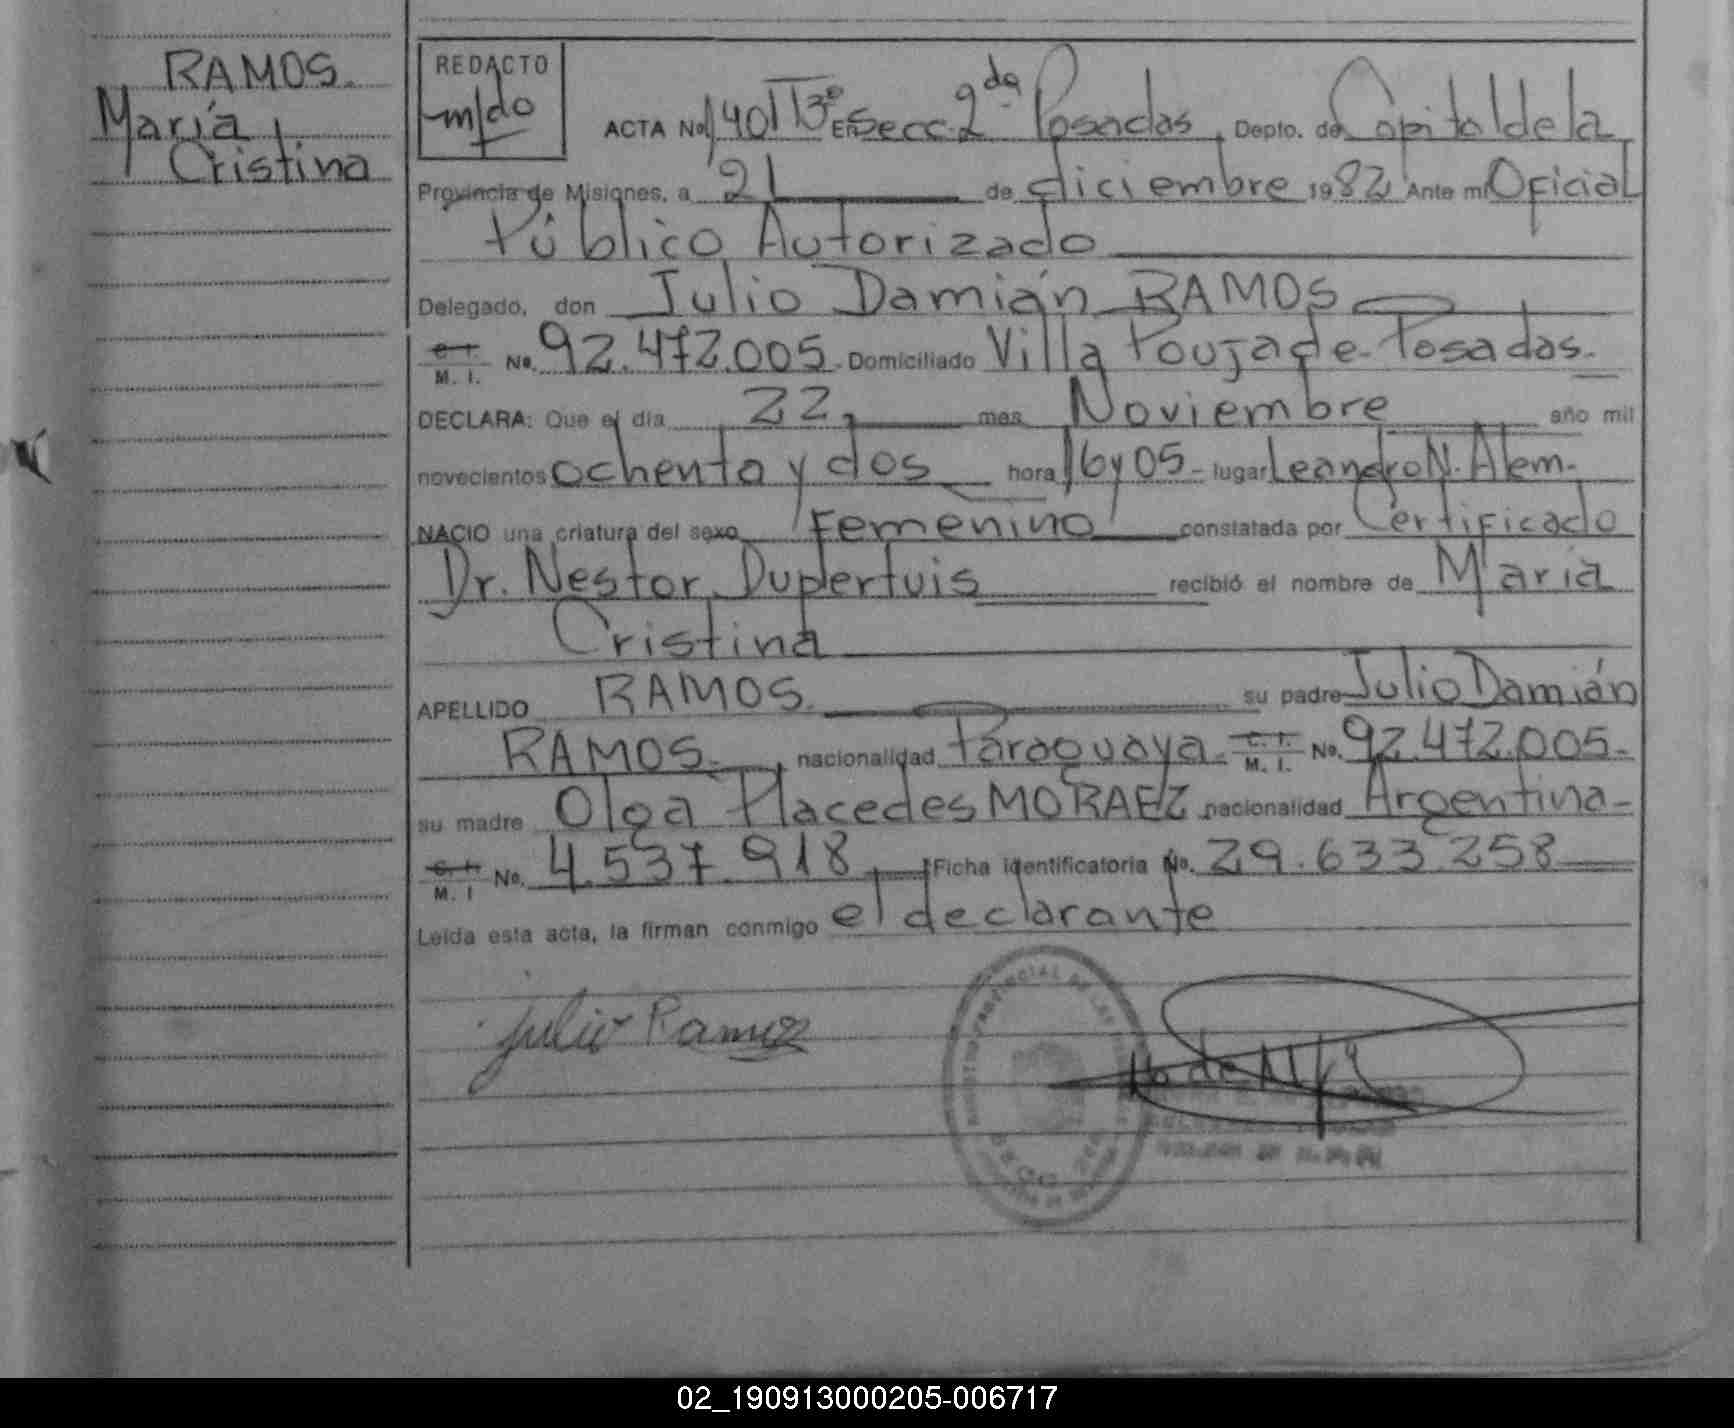 RAMOS.
María
Cristina
REDACTO
m/do
ACTA No 140 T 13º En Secc. 2da Posadas, Depto. de Capital de la
Provincia de Misiones, a 21 de diciembre 1982 Ante mi Oficial
Público Autorizado
Delegado, don Julio Damián RAMOS
C. I.
M. I. No. 92.472.005. Domiciliado Villa Poujade-Posadas.
DECLARA: Que el día 22 mes Noviembre año mil
novecientos ochenta y dos hora 16 y 05 - lugar Leandro N. Alem.
NACIO una criatura del sexo Femenino constatada por Certificado
Dr. Nestor Dupertuis recibió el nombre de María
Cristina
APELLIDO RAMOS. su padre Julio Damián
RAMOS. nacionalidad Paraguaya. C. I. M. I. No. 92.472.005.
su madre Olga Placedes MORAEZ nacionalidad Argentina-
C. I.
M. I No. 4.537.918 Ficha identificatoria No. 29.633.258
Leída esta acta, la firman conmigo el declarante
Julio Ramos
02_190913000205-006717